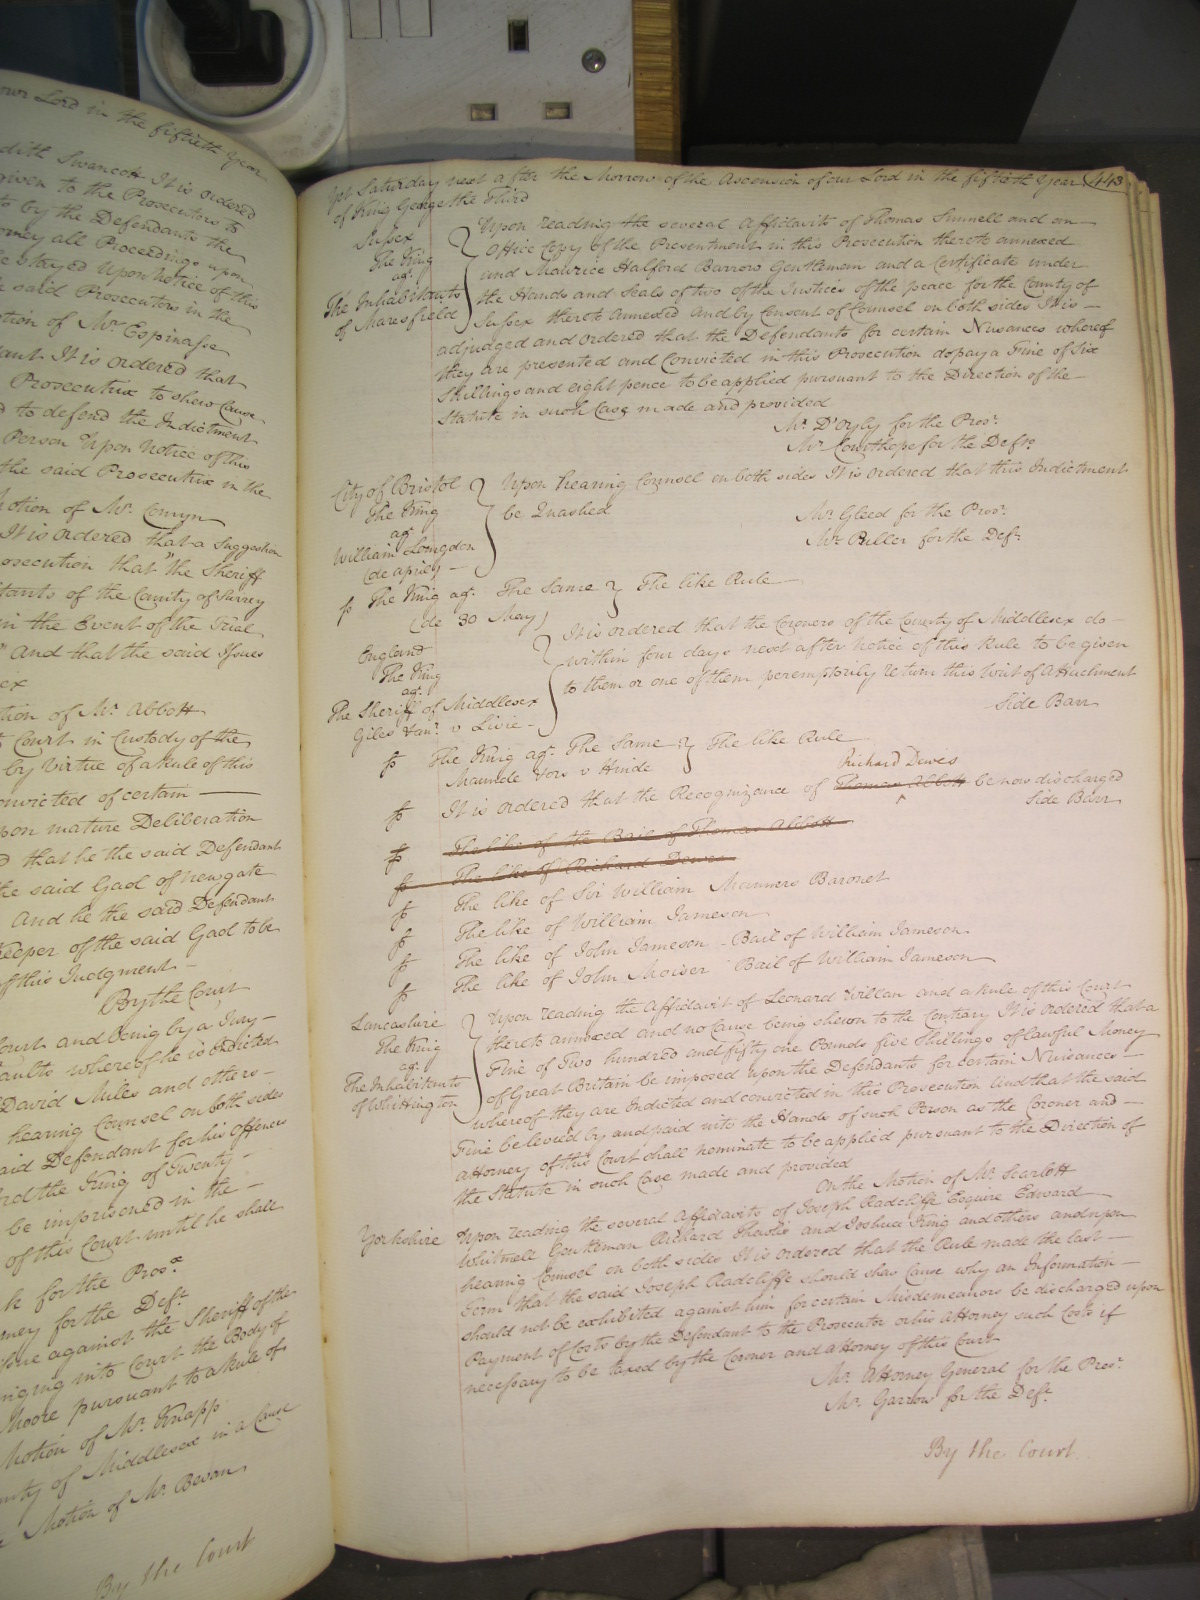 our Lord in the fiftieth Year
dith Swancott It is ordered
given to the Prosecutors to
to by the Defendants the
orney all Proceedings upon
be stayed Upon Notice of this
said Prosecutors in the
otion of Mr. Espinasse
dant It is ordered that
Prosecutrix to shew Cause
d to defend the Indictment
Person Upon Notice of this
the said Prosecutrix in the
Motion of Mr. Comyn
It is ordered that a Suggestion
rosecution that "the Sheriff
itants of the County of Surrey
in the Event of the Trial
" And that the said Issues
ex
tion of Mr. Abbott
Court in Custody of the
by Virtue of a Rule of this
onvicted of certain
pon mature Deliberation
d that he the said Defendant
the said Gaol of Newgate
And he the said Defendant
Keeper of the said Gaol to be
of this Judgment
By the Court
Court and being by a Jury
aults whereof he is indicted
David Miles and others
hearing Counsel on both sides
aid Defendant for his Offences
ord the King of Twenty
be imprisoned in the
of this Court until he shall
k for the Prosr.
ney for the Deft.
issue against the Sheriff of the
inging into Court the Body of
Moore pursuant to a Rule of
Motion of Mr. Knapp
unty of Middlesex in a Cause
Motion of Mr. Bevan
By the Court
443
Yet Saturday next after the Morrow of the Ascension of our Lord in the fiftieth Year
of King George the Third
Sussex
The King
agt.
The Inhabitants
of Maresfield
Upon reading the several Affidavits of Thomas Sunnell and an
Office Copy of the Presentment in this Prosecution thereto annexed
and Maurice Halford Barrow Gentleman and a Certificate under
the Hands and Seals of two of the Justices of the peace for the County of
Sussex thereto annexed And by Consent of Counsel on both sides It is
adjudged and ordered that the Defendants for certain Nusances whereof
they are presented and Convicted in this Prosecution do pay a Fine of Six
Shillings and eight pence to be applied pursuant to the Direction of the
Statute in such Case made and provided
Mr. D'Oyly for the Prosr.
Mr. Courthope for the Defts.
City of Bristol
The King
agt.
William Longdon
(de april)
Upon hearing Counsel on both sides It is ordered that this Indictment
be Quashed
Mr. Gleed for the Prosr.
Mr. Puller for the Deft.
fs The King agt. The Same } The like Rule
(de 30 May)
England
The King
agt.
The Sheriff of Middlesex
Giles & anr. v Livie
It is ordered that the Coroners of the County of Middlesex do
within four days next after Notice of this Rule to be given
to them or one of them peremptorily return this Writ of Attachment
Side Barr
fs The King agt. The Same } The like Rule
Maunde & ors v Hinde
Richard Dewes
fs It is ordered that the Recognizance of Thomas Abbott be now discharged
Side Barr
fs The like of the Bail of Thomas Abbott
fs The like of Richard Dewes
fs The like of Sir William Manners Baronet
fs The like of William Jameson
fs The like of John Jameson - Bail of William Jameson
fs The like of John Moiser - Bail of William Jameson
Lancashire
The King
agt.
The Inhabitants
of Whittington
Upon reading the Affidavit of Leonard Willan and a Rule of this Court
thereto annexed and no Cause being shewn to the Contrary It is ordered that a
Fine of Two hundred and fifty one Pounds five Shillings of lawful Money
of Great Britain be imposed upon the Defendants for certain Nuisances
whereof they are Indicted and convicted in this Prosecution And that the said
Fine be levied by and paid into the Hands of such Person as the Coroner and
Attorney of this Court shall nominate to be applied pursuant to the Direction of
the Statute in such Case made and provided
On the Motion of Mr. Scarlett
Yorkshire
Upon reading the several Affidavits of Joseph Radcliffe Esquire Edward
Whitwell Gentleman Richard and Joshua King and others and upon
hearing Counsel on both sides It is ordered that the Rule made the last
Term that the said Joseph Radcliffe should shew Cause why an Information
should not be exhibited against him for certain Misdemeanors be discharged upon
Payment of Costs by the Defendant to the Prosecutor or his Attorney such Costs if
necessary to be taxed by the Coroner and Attorney of this Court
Mr. Attorney General for the Prosr.
Mr. Garrow for the Deft.
By the Court